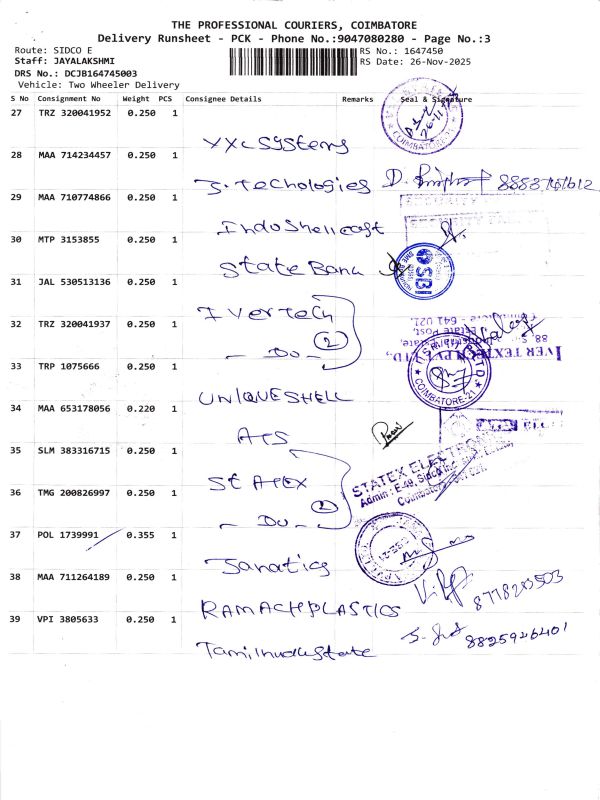 THE PROFESSIONAL COURIERS, COIMBATORE
Delivery Runsheet - PCK - Phone No.:9047080280 - Page No.:3
Route: SIDCO E RS No.: 1647450
Staff: JAYALAKSHMI RS Date: 26-Nov-2025
DRS No.: DCJB164745003
Vehicle: Two Wheeler Delivery
S No Consignment No Weight PCS Consignee Details Remarks Seal & Signature
27 TRZ 320041952 0.250 1
XXL Systems COIMBATORE
28 MAA 714234457 0.250 1
J. Techologies
29 MAA 710774866 0.250 1
IndoShellcast
30 MTP 3153855 0.250 1
State Bank SB
31 JAL 530513136 0.250 1
Ivertech
32 TRZ 320041937 0.250 1
- Do - 2
Coimbatore - 641 021.
Estate Post,
IVER TEXTECH PVT LTD.,
33 TRP 1075666 0.250 1
UNIQUESHELL COIMBATORE-21
34 MAA 653178056 0.220 1
ATS
35 SLM 383316715 0.250 1
StATEX
STATEX ELECTRONICS
Admin : E-49, Sidco
36 TMG 200826997 0.250 1
- Do - 2
37 POL 1739991 0.355 1
Janatics
38 MAA 711264189 0.250 1
RAMACHPLASTICS 8778203503
39 VPI 3805633 0.250 1
Tamilnadustate 8825946401